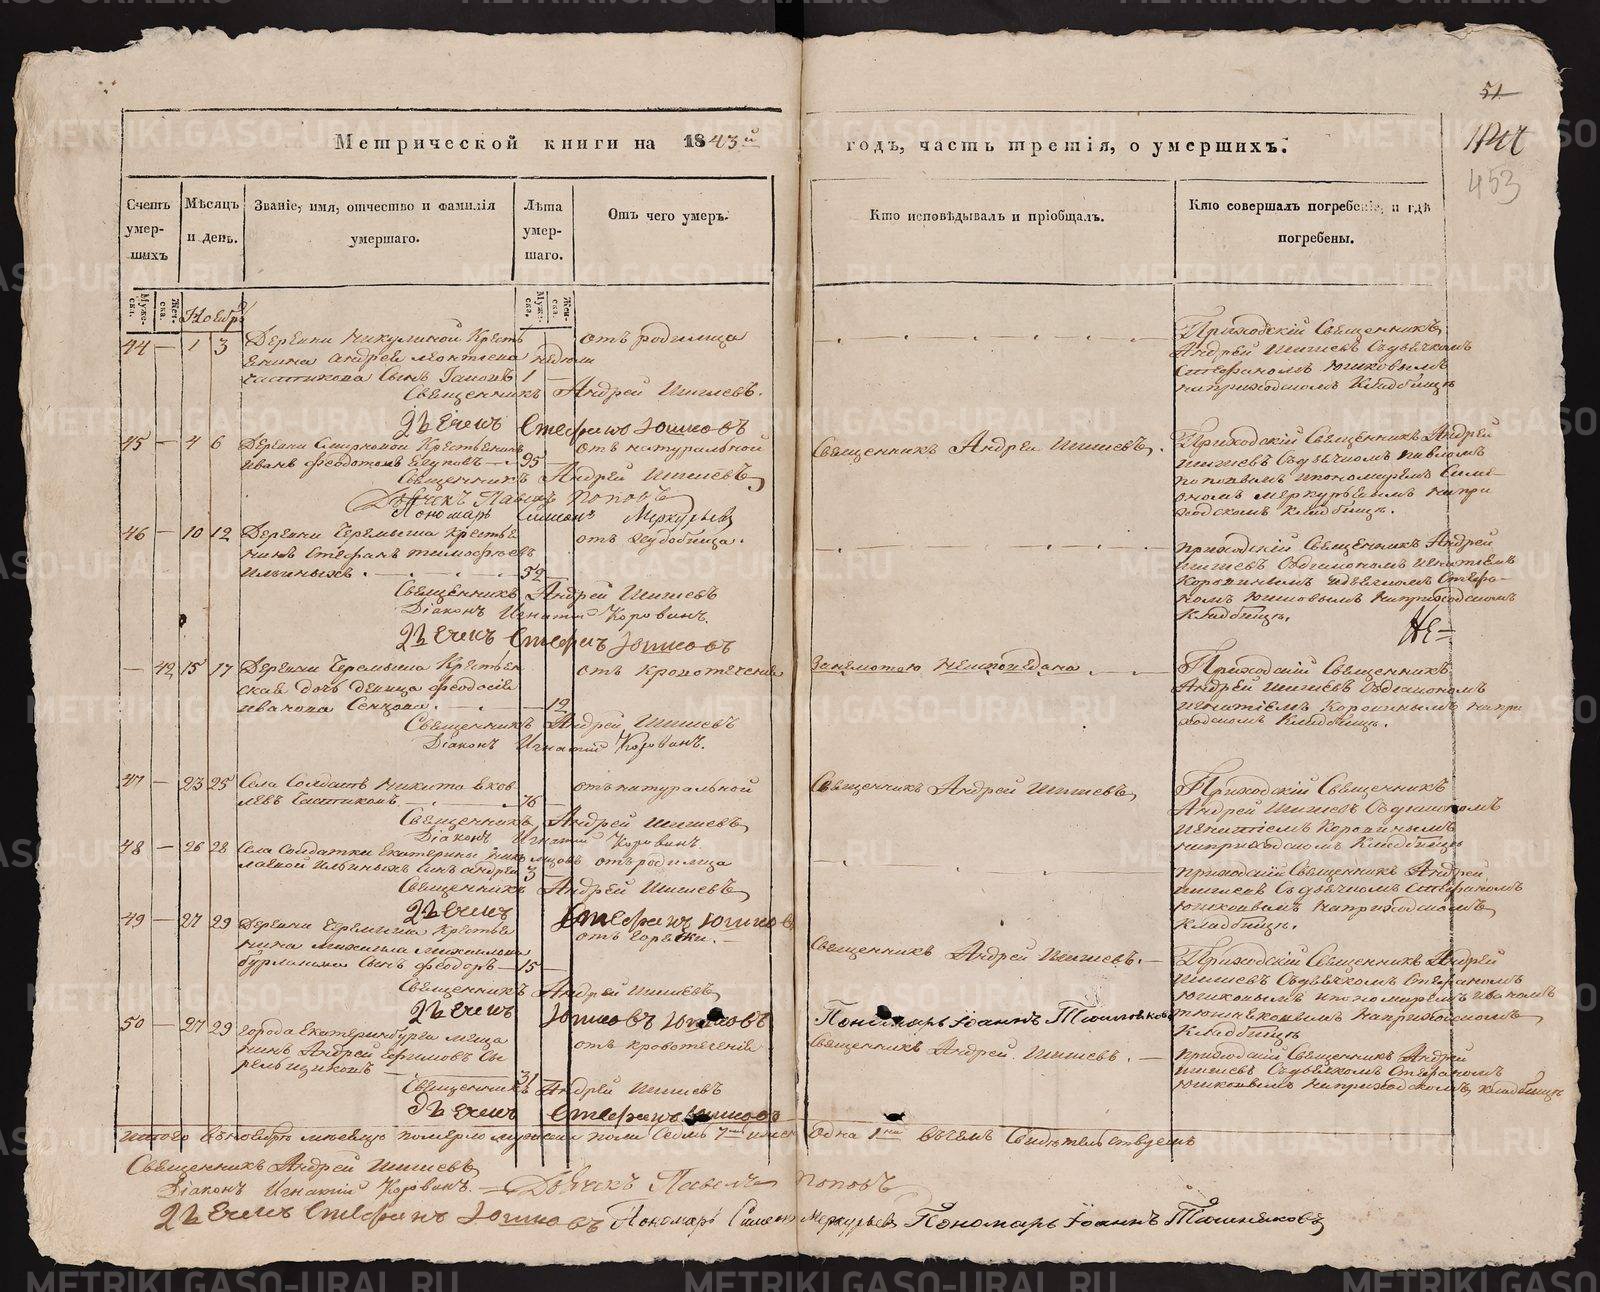 51
453
Метрической книги на 1843й годъ, часть третія, о умершихъ.
Счетъ умершихъ
Мѣсяцъ и день.
Званіе, имя, отчество и фамилія умершаго.
Лѣта умершаго.
Отъ чего умеръ.
Кто исповѣдывалъ и пріобщалъ.
Кто совершалъ погребеніе, и гдѣ погребены.
Ноября
44 — 1 3 Деревни Никулиной Кресть отъ родимца
янина Андрея недели
Сынъ 1
Священникъ Андрей Шишевъ.
Дьячекъ Стефанъ Юшковъ
Приходскій Священникъ
Андрей Шишевъ Съдьячкомъ
Стефаномъ Юшковымъ
наприходскомъ Кладбищѣ
45 — 4 6 Деревни Крестьянинъ отъ натуральной
Иванъ Феодотовъ 95
Священникъ Андрей Шишевъ
Дьячекъ Павелъ Поповъ
Пономарь Симеонъ Меркурьевъ
Священникъ Андрей Шишевъ.
Приходскій Священникъ Андрей
Шишевъ Съдьячкомъ Павломъ
Поповымъ ипономаремъ Симе-
ономъ Меркурьевымъ напри
ходскомъ Кладбищѣ.
46 — 10 12 Деревни Черемыша Крестья
нинъ Стефанъ Тимофѣевъ
Ильиныхъ. 52
Священникъ Андрей Шишевъ
Діаконъ Игнатій Коровинъ.
Дьячекъ Стефанъ Юшковъ
приходскій Священникъ Андрей
Шишевъ Съдіакономъ Игнатіемъ
Коровинымъ идьячкомъ Стефа-
номъ Юшковымъ наприходскомъ
Кладбищѣ.
— 42 15 17 Деревни Черемыша Крестьян отъ кровотеченія
ская дочь девица Феодосія
Иванова 12
Священникъ Андрей Шишевъ
Діаконъ Игнатій Коровинъ.
Занемотою неисповедана
Приходскій Священникъ
Андрей Шишевъ Съдіакономъ
Игнатіемъ Коровинымъ напри
ходскомъ Кладбищѣ.
47 — 23 25 Села Солдатъ Никита Яков отъ натуральной
левъ 76
Священникъ Андрей Шишевъ
Діаконъ Игнатій Коровинъ.
Священникъ Андрей Шишевъ
Приходскій Священникъ
Андрей Шишевъ Съдіакономъ
Игнатіемъ Коровинымъ
наприходскомъ Кладбищѣ
48 — 26 28 Села Солдатки Екатерины Нико месяцовъ отъ родимца
лаевой Ильиныхъ Сынъ Андрей 3
Священникъ Андрей Шишевъ
Дьячекъ Стефанъ Юшковъ
приходскій Священникъ Андрей
Шишевъ Съдьячкомъ Стефаномъ
Юшковымъ наприходскомъ
Кладбищѣ.
49 — 27 29 Деревни Черемыша Крестья отъ горячки.
нина Михаила Михаилова
Сынъ Феодоръ 15
Священникъ Андрей Шишевъ
Дьячекъ Юшковъ Юшковъ
Священникъ Андрей Шишевъ.
Пономарь Іоаннъ
Приходскій Священникъ Андрей
Шишевъ Съдьячкомъ Стефаномъ
Юшковымъ ипономаремъ Иваномъ
наприходскомъ
Кладбищѣ
50 — 27 29 города Екатеринбурга меща
нинъ Андрей Ефимовъ отъ кровотеченія
31
Священникъ Андрей Шишевъ
Дьячекъ Стефанъ Юшковъ
Священникъ Андрей Шишевъ.
приходскій Священникъ Андрей
Шишевъ Съдьячкомъ Стефаномъ
Юшковымъ наприходскомъ кладбищѣ
Итого въ Ноябрѣ мѣсяцѣ померло мужеска пола Седмь 7 ижен Одна 1 въчемъ Свидѣтельствуемъ
Священникъ Андрей Шишевъ
Діаконъ Игнатій Коровинъ. — Дьячекъ Павелъ Поповъ
Дьячекъ Стефанъ Юшковъ Пономарь Симеонъ Меркурьевъ Пономарь Іоаннъ
METRIKI.GASO-URAL.RU